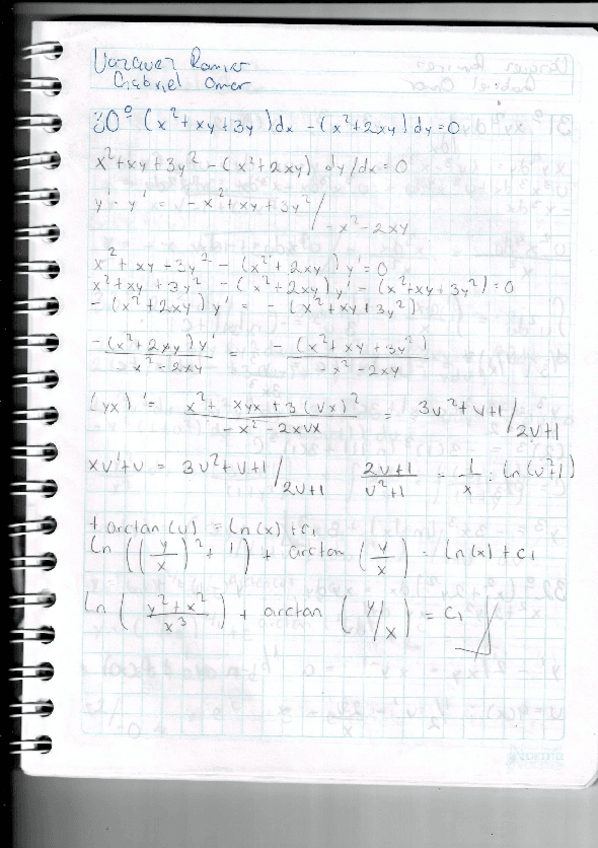 Vazquez Ramirez
Gabriel Omar
30° (x²+xy+3y)dx - (x²+2xy)dy=0
x²+xy+3y² - (x²+2xy) dy/dx=0
y' - y' = - x²+xy+3y² / -x²-2xy
x²+xy-3y² - (x²+2xy)y'=0
x²+xy+3y² - (x²+2xy)y' - (x²+xy+3y²)=0
- (x²+2xy)y' = - (x²+xy+3y²)
-(x²+2xy)y' / -x²-2xy = - (x²+xy+3y²) / -x²-2xy
(yx)' = x²+xyx+3(vx)² / -x²-2xvx = 3v²+v+1/2v+1
xv'+v = 3v²+v+1/2v+1 2v+1/v²+1 = 1/x : ln(v²+1)
+ arctan(v) = ln(x)+c₁
ln((y/x)²+1) + arctan(y/x) = ln(x)+c₁
ln(y²+x²/x³) + arctan(y/x) = c₁
Norma